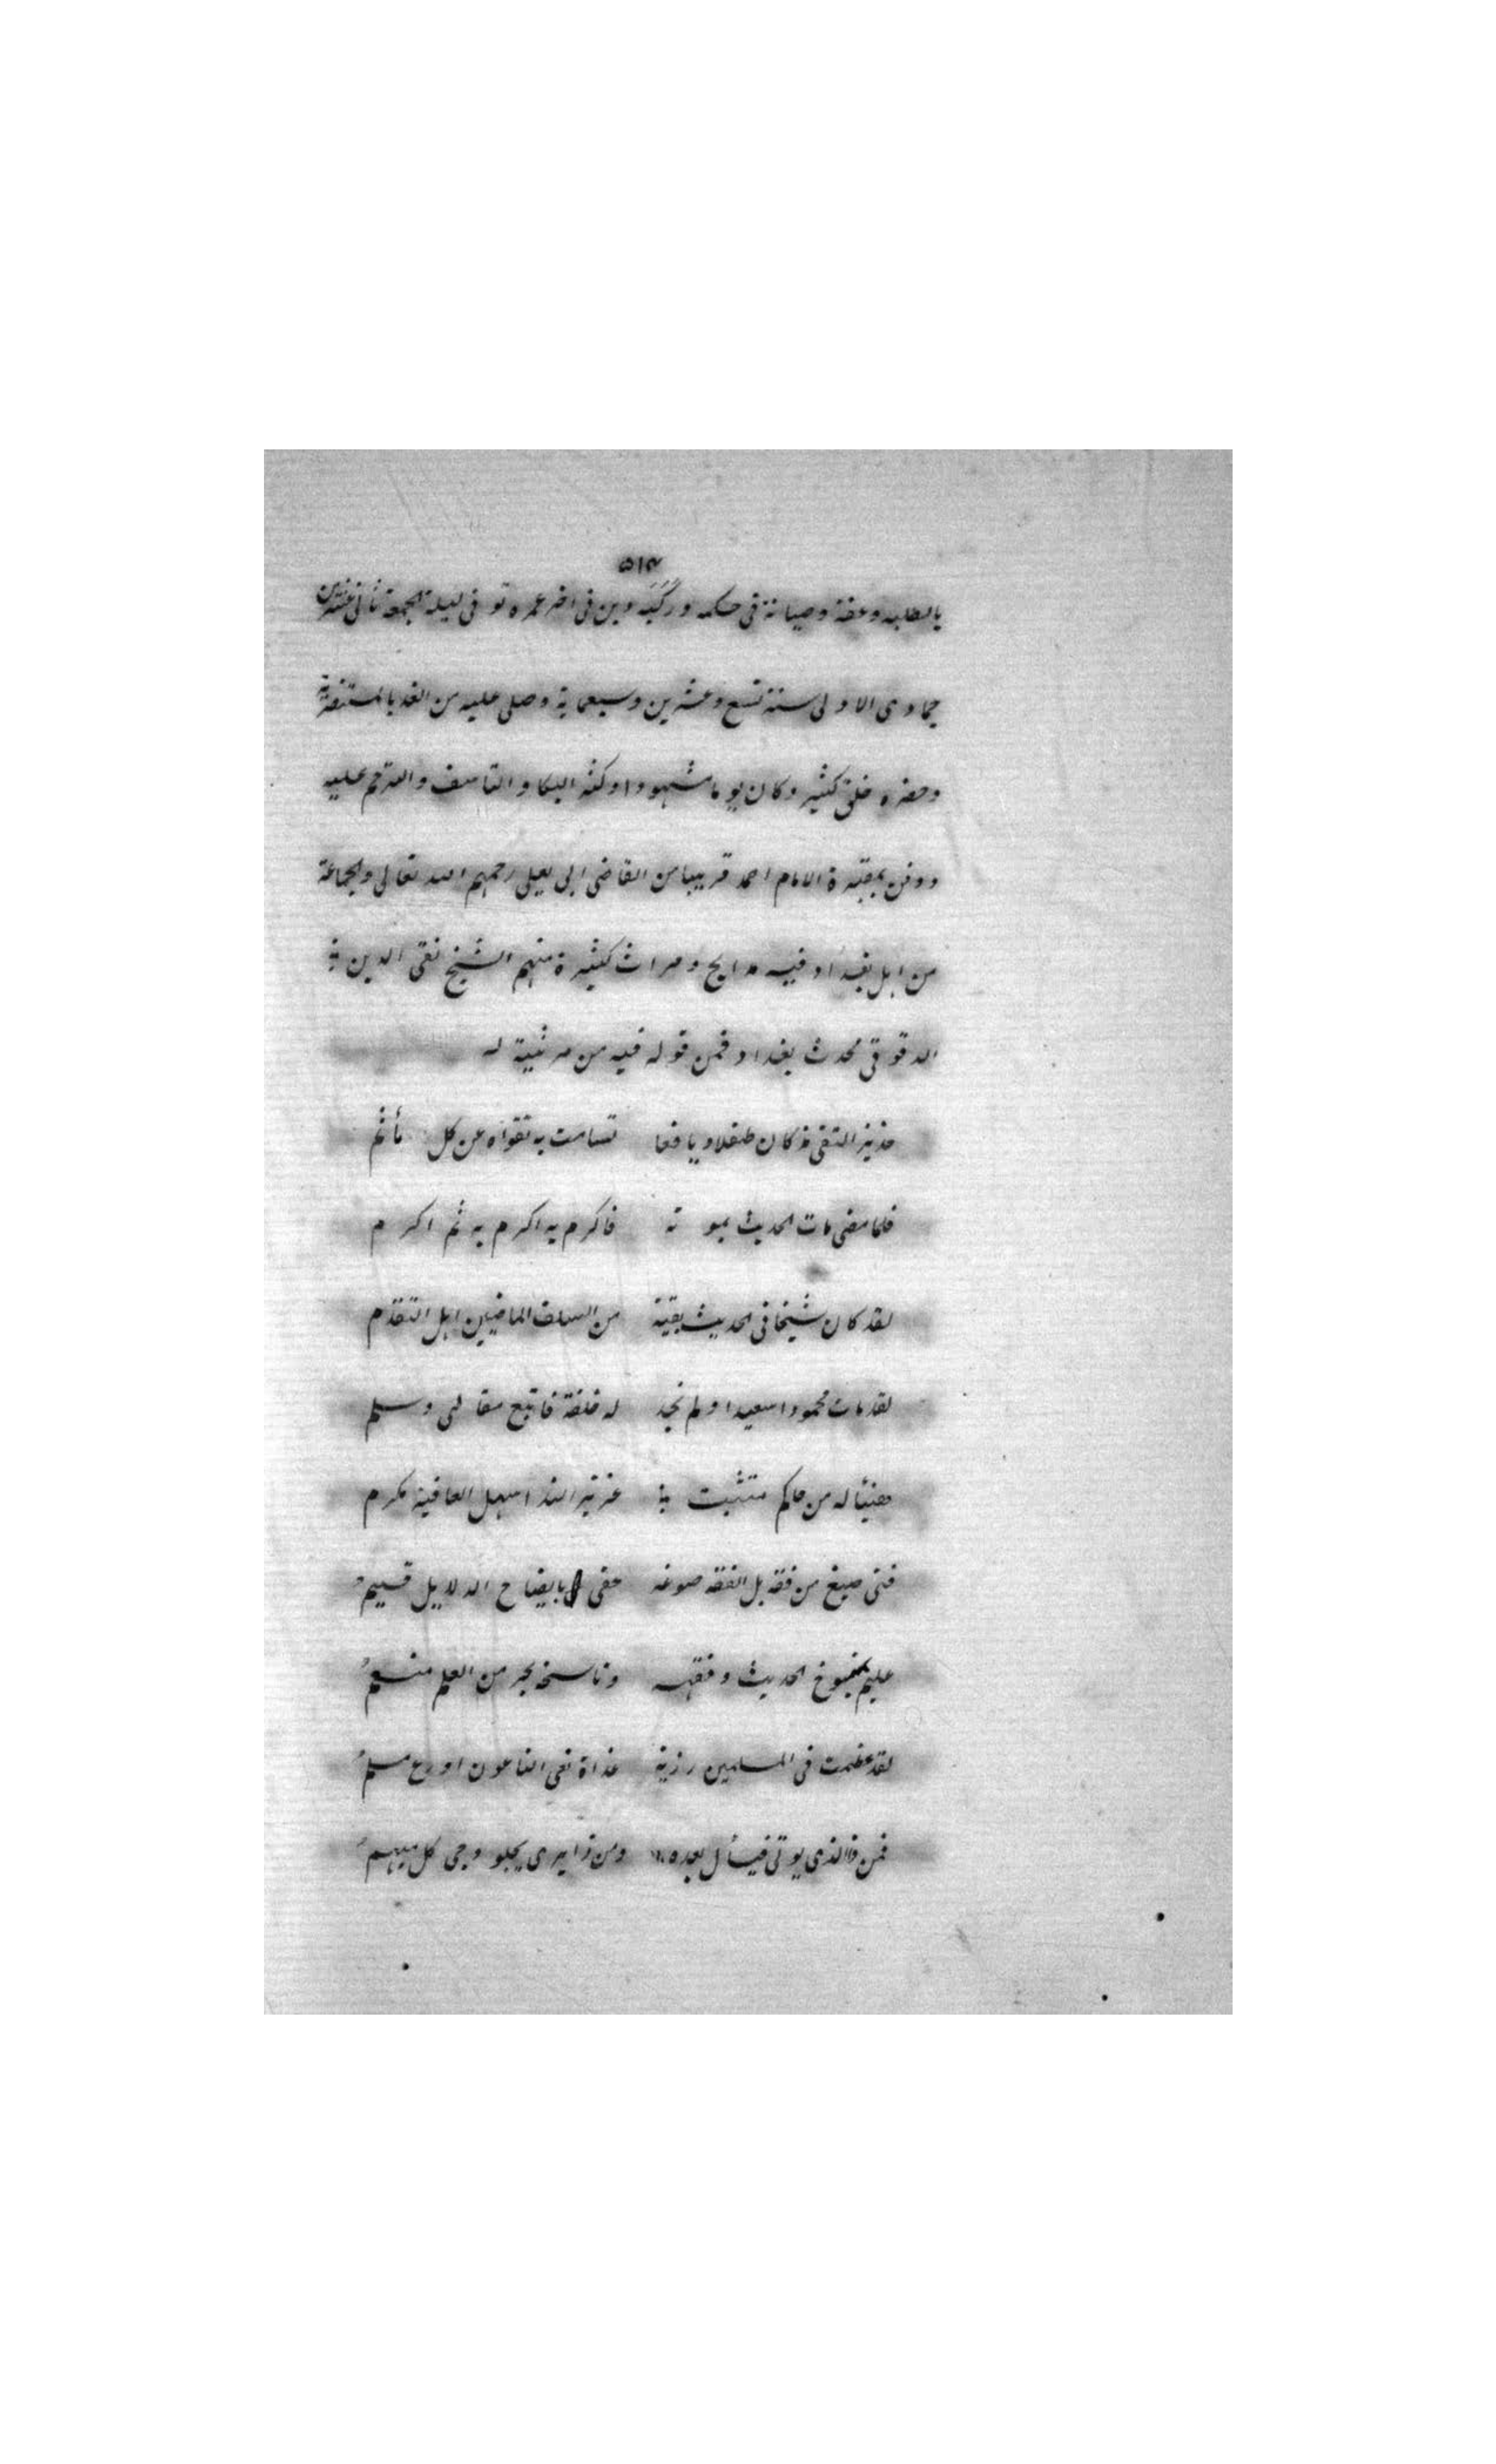 ٥١٣
بالطلبه وعفة وصيانة فى حكمه وركبته وين فى اخر عمره توفى ليلة الجمعة ثانى عشرين
جمادى الاولى سنة تسع وعشرين وسبعماية وصلى عليه من الغد بالمستنصرية
وحضره خلق كثير وكان يوما مشهودا وكثر البكا والتاسف والترحم عليه
ودفن بمقبرة الامام احمد قريبا من القاضى ابى يعلى رحمهم الله تعالى ولجماعة
من اهل بغداد فيه مدايح ومراث كثيرة منهم الشيخ تقى الدين
الدقوقى محدث بغداد فمن قوله فيه من مرثية له
التقى مذ كان طفلا ويافعا تسامت به تقواه عن كل مأثم
فلما مضى مات الحديث بموته فاكرم به اكرم به ثم اكرم
لقد كان شيخا فى الحديث بقية من السلف الماضين اهل التقدم
لقد مات محمودا سعيدا ولم نجد له خلفة فاتبع مقالتى وسلم
هنيئا له من حاكم متثبت عزيز الندا سهل العافية مكرم
فتى صيغ من فقه بل الفقه صوغه حفى بايضاح الدلايل قسيم
عليم بمنسوخ الحديث وفقهه وناسخه بحر من العلم منعم
لقد عظمت فى المسلمين رزية غداة نعى الناعون اورع مسلم
فمن ذا الذى يوتى فيسأل بعده ومن ذا يرى يجلو دجى كل مبهم